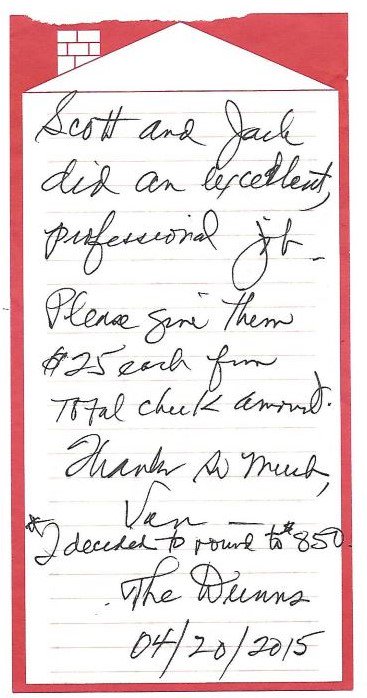 Scott and Jack
did an excellent,
professional job.
Please give them
$25 each from
Total check amount.
Thanks so much,
Van —
*I decided to round to $850.
The Dunns
04/20/2015